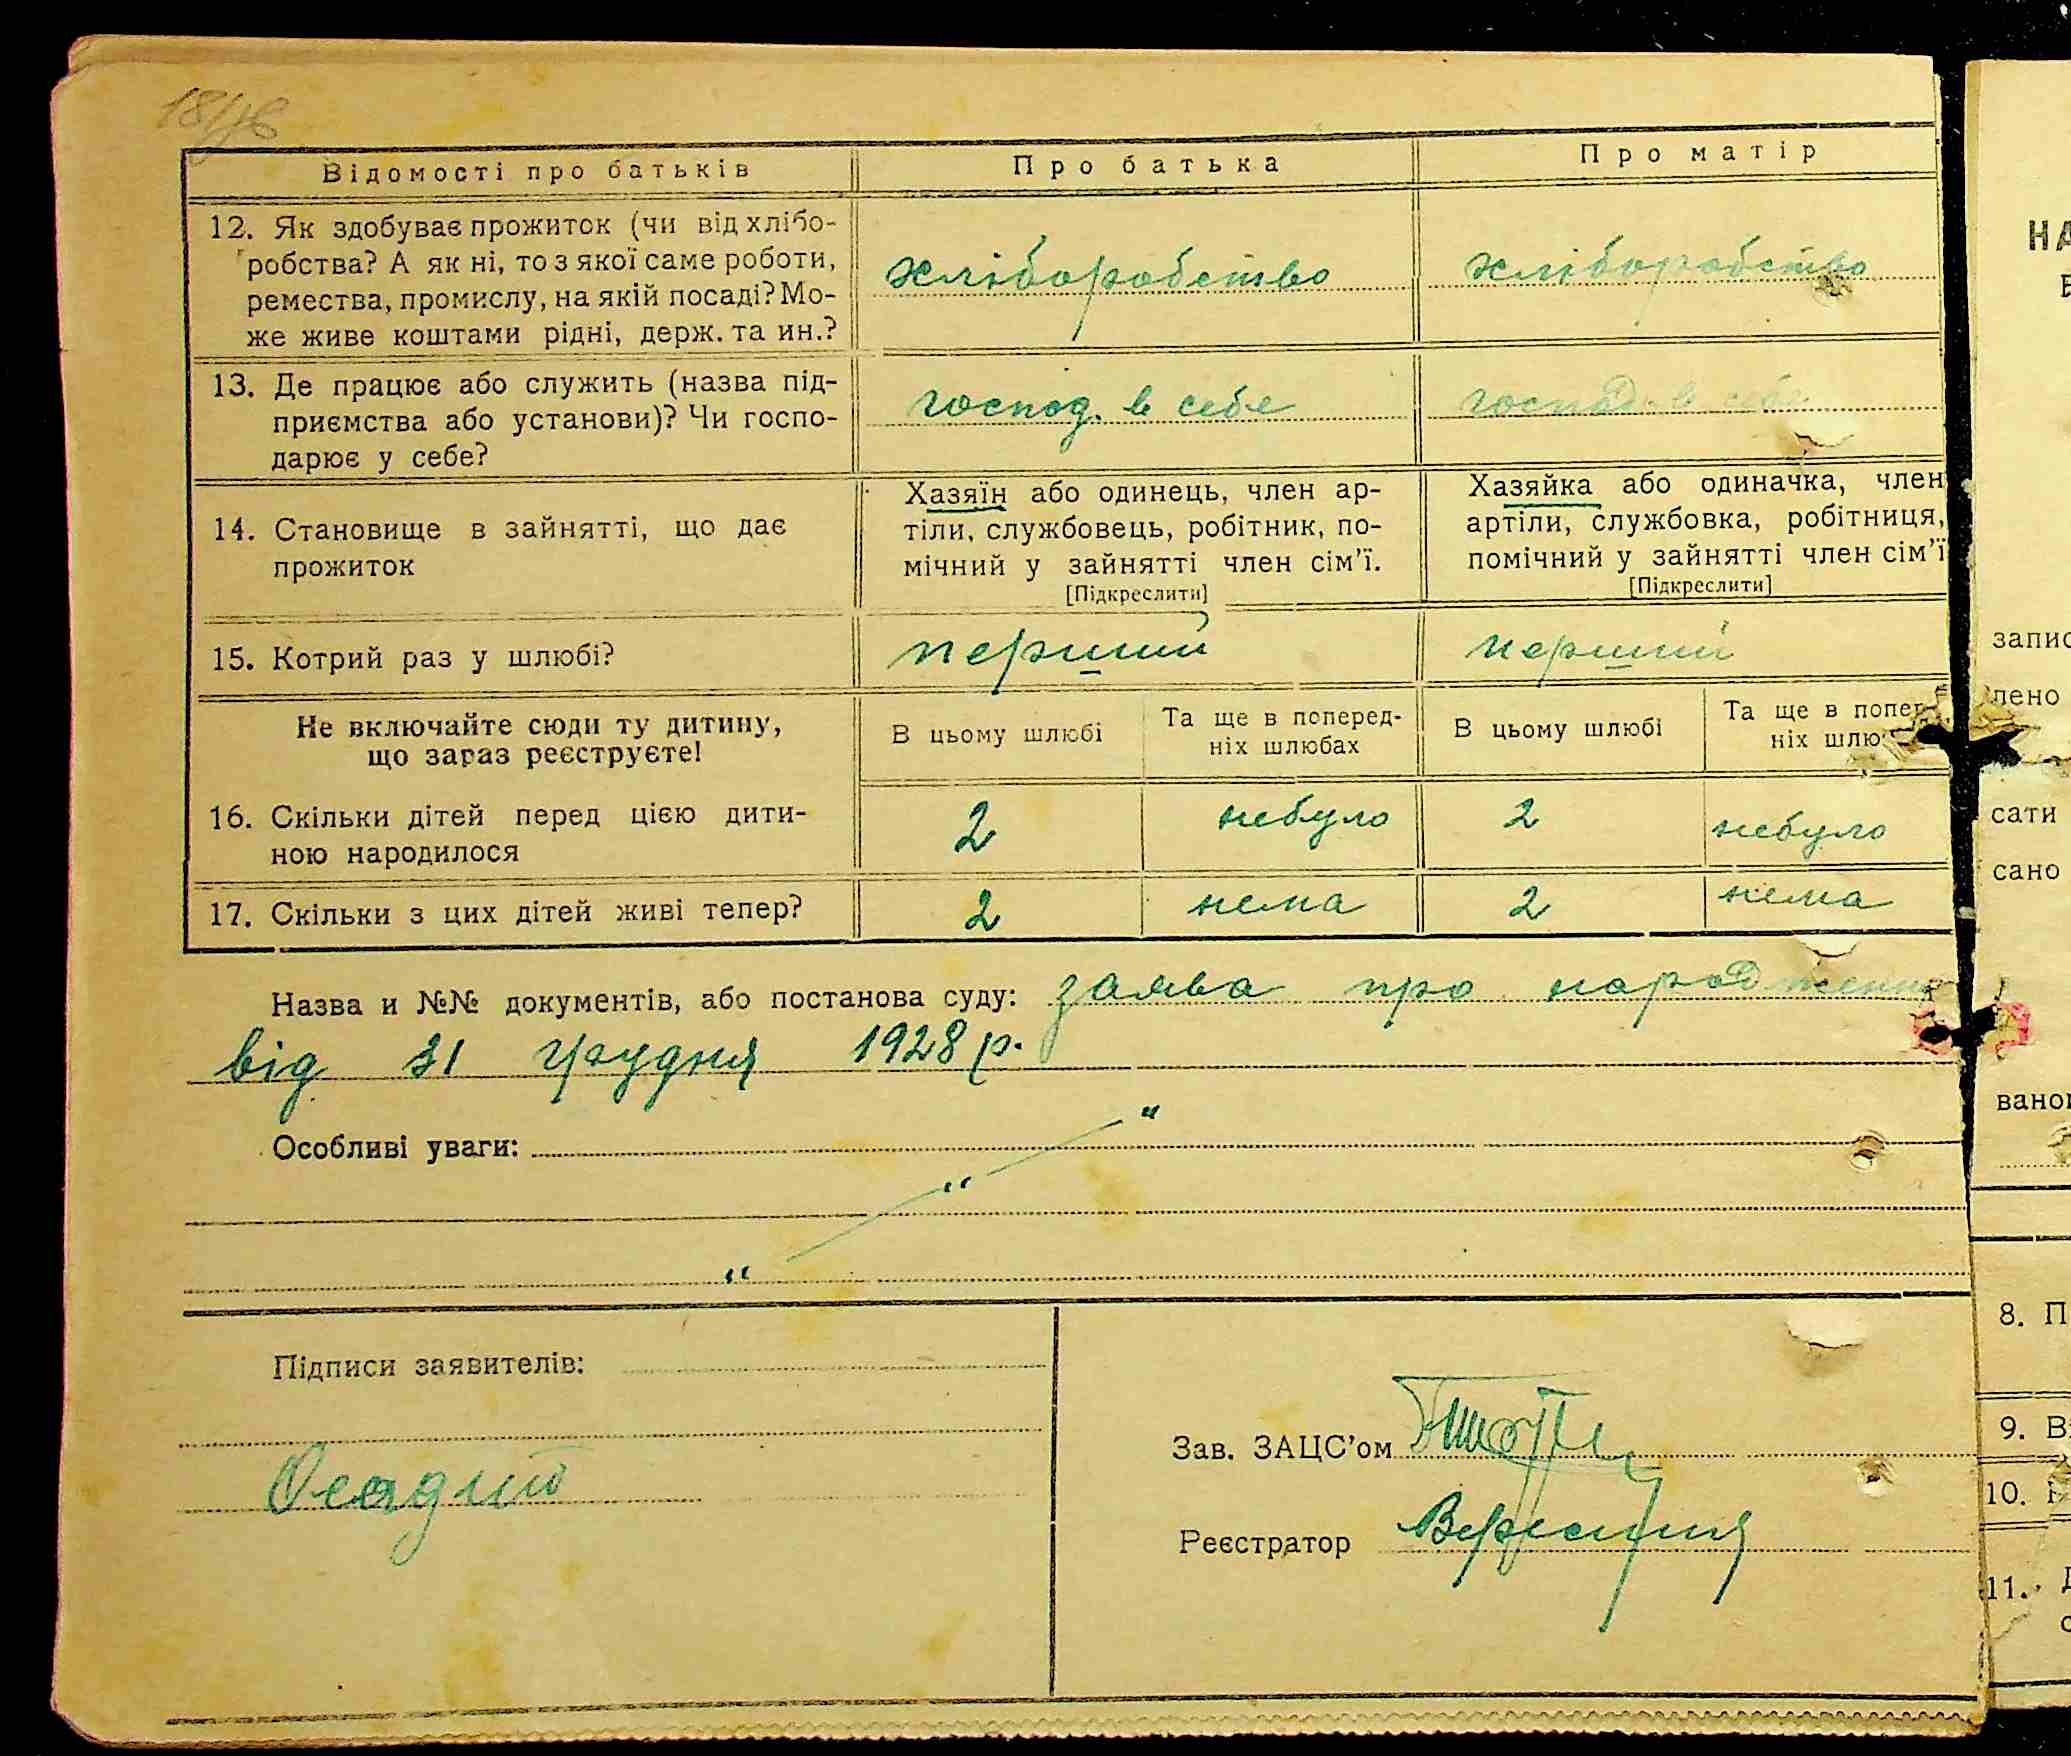 Відомості про батьків
Про батька
Про матір
12. Як здобуває прожиток (чи від хлібо-
робства? А як ні, то з якої саме роботи,
ремества, промислу, на якій посаді? Мо-
же живе коштами рідні, держ. та ин.?
хліборобство
хліборобство
13. Де працює або служить (назва під-
приємства або установи)? Чи госпо-
дарює у себе?
господ. в себе
господ. в себе
14. Становище в зайнятті, що дає
прожиток
Хазяїн або одинець, член ар-
тіли, службовець, робітник, по-
мічний у зайнятті член сім'ї.
[Підкреслити]
Хазяйка або одиначка, член
артіли, службовка, робітниця,
помічний у зайнятті член сім'ї
[Підкреслити]
15. Котрий раз у шлюбі?
перший
перший
Не включайте сюди ту дитину,
що зараз реєструєте!
В цьому шлюбі
Та ще в поперед-
ніх шлюбах
В цьому шлюбі
Та ще в попер
ніх шлю
16. Скільки дітей перед цією дити-
ною народилося
2
небуло
2
небуло
17. Скільки з цих дітей живі тепер?
2
нема
2
нема
Назва и №№ документів, або постанова суду: заява про народження
від 31 грудня 1928 р.
Особливі уваги: "
"
"
Підписи заявителів:
Зав. ЗАЦС'ом
Реєстратор
НА
запис
лено
сати
сано
ванон
8. П
9. В
10.
11.